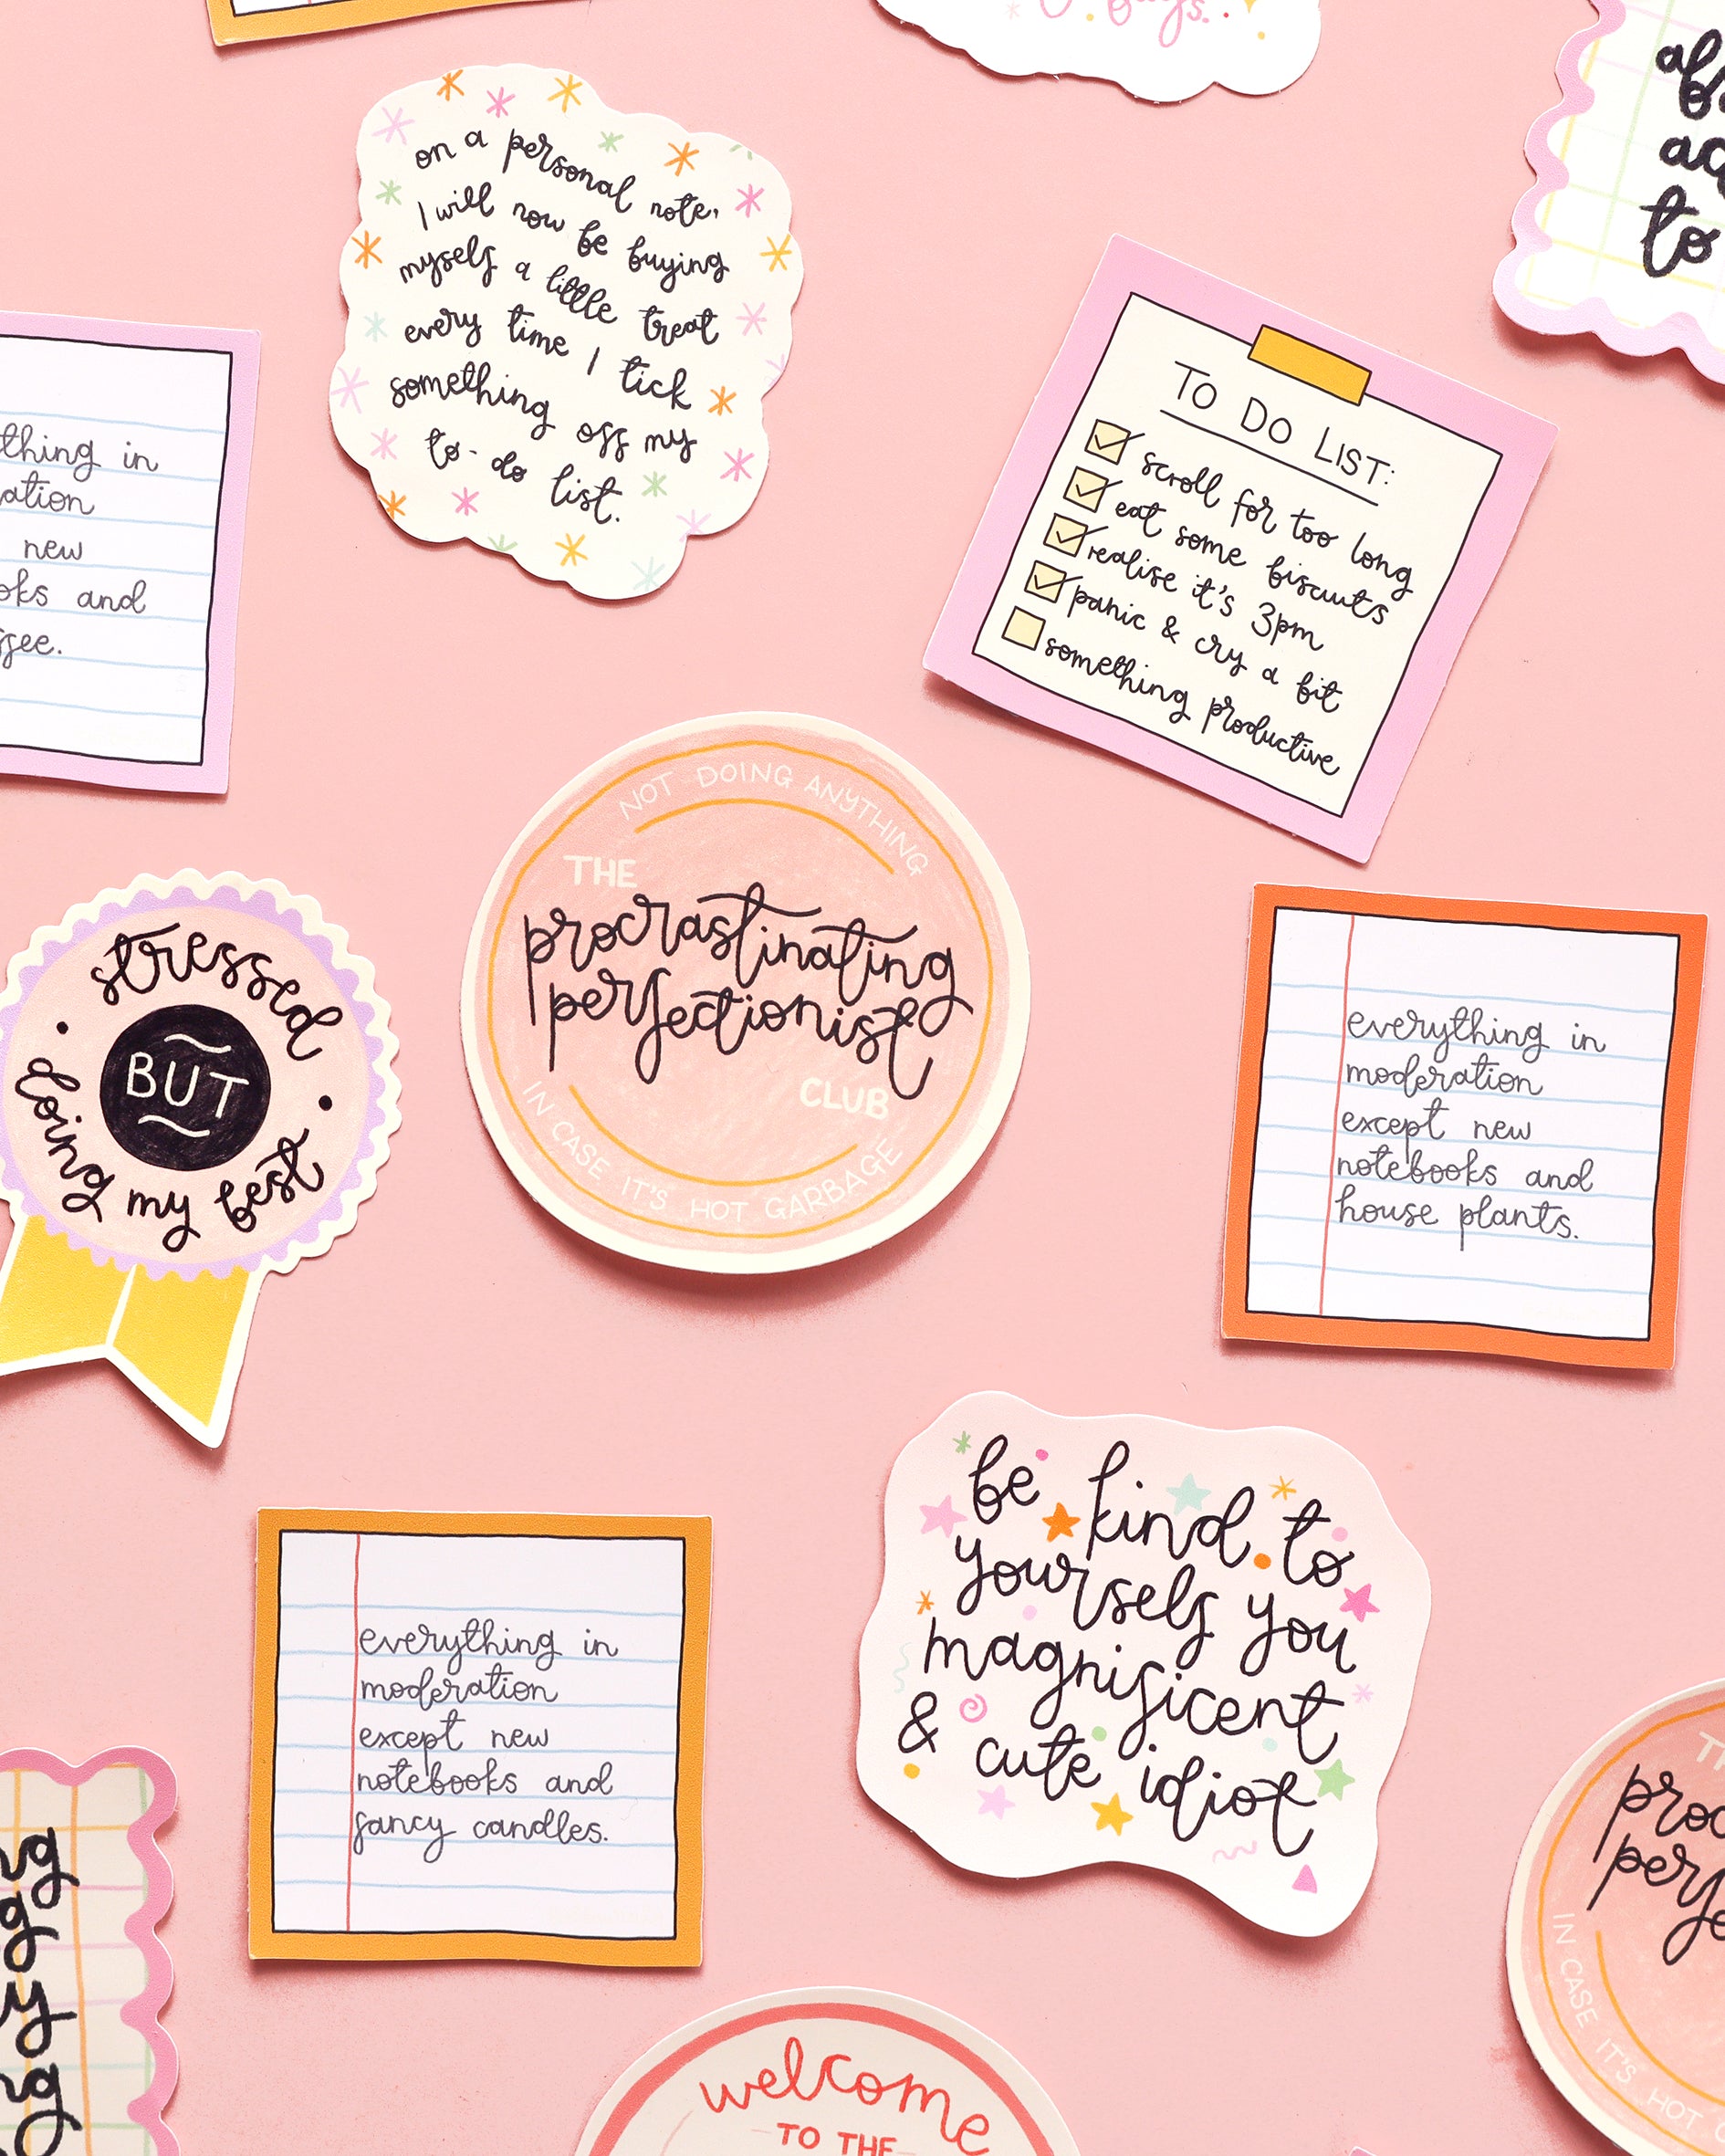 on a personal note,
I will now be buying
myself a little treat
every time I tick
something off my
to-do list.
TO DO LIST:
scroll for too long
eat some biscuits
realise it's 3pm
panic & cry a bit
something productive
to
in
new
and
NOT DOING ANYTHING
THE
procrastinating
perfectionist
CLUB
IN CASE IT'S HOT GARBAGE
stressed
BUT
doing my best
everything in
moderation
except new
notebooks and
house plants.
be kind to
yourself you
magnificent
& cute idiot
everything in
moderation
except new
notebooks and
fancy candles.
IN CASE IT'S HOT
welcome
TO THE